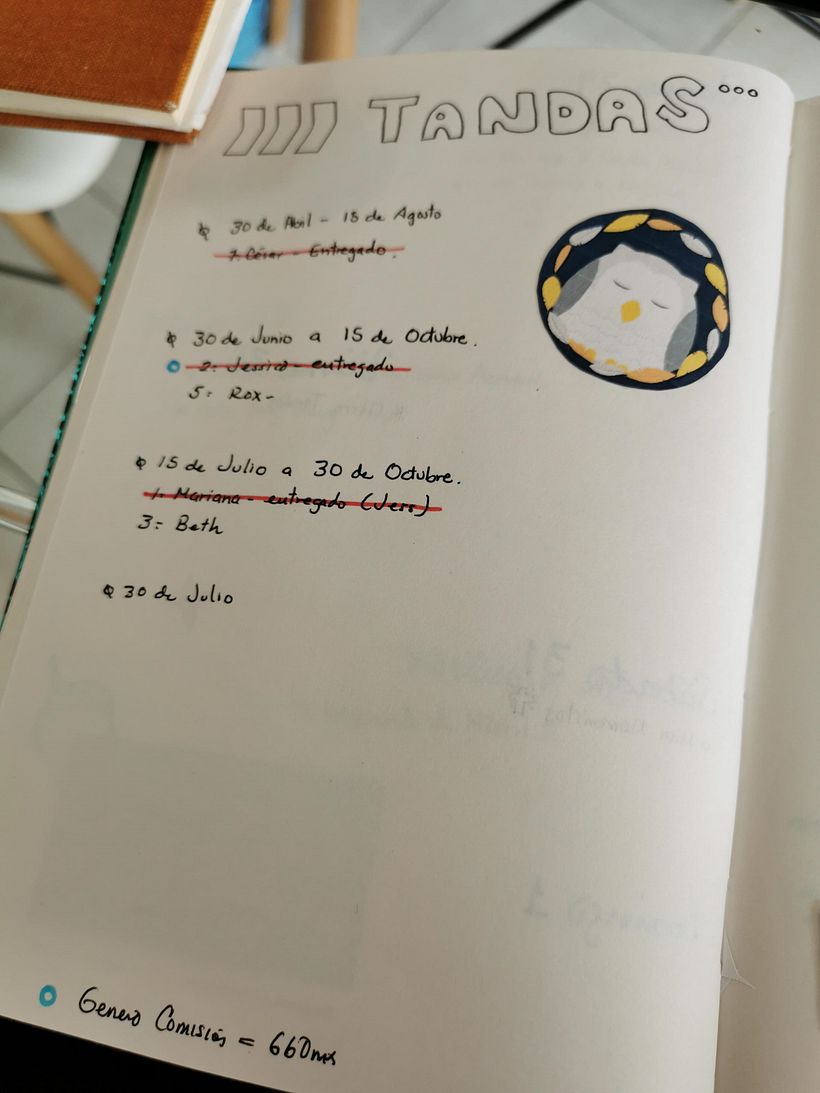 /// TANDAS...
30 de Abril - 15 de Agosto
7. César - Entregado.
30 de Junio a 15 de Octubre.
2: Jessica - entregado
5: Rox-
15 de Julio a 30 de Octubre.
1. Mariana - entregado (Jess)
3: Beth
30 de Julio
Genero Comisión = 660mx